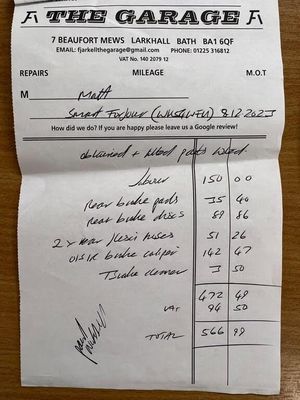 THE GARAGE
7 BEAUFORT MEWS LARKHALL BATH BA1 6QF
EMAIL: fjarkellthegarage@gmail.com PHONE: 01225 316812
VAT No. 140 2079 12
REPAIRS MILEAGE M.O.T
M Matt
Smart ForFour 8.12.2023
How did we do? If you are happy please leave us a Google review!
obtained + fitted parts listed
Labour 150 00
Rear brake pads 35 40
Rear brake discs 89 86
2 x rear flexi hoses 51 26
O/S/R brake caliper 142 47
Brake cleaner 3 50
472 49
VAT 94 50
TOTAL 566 99
paid